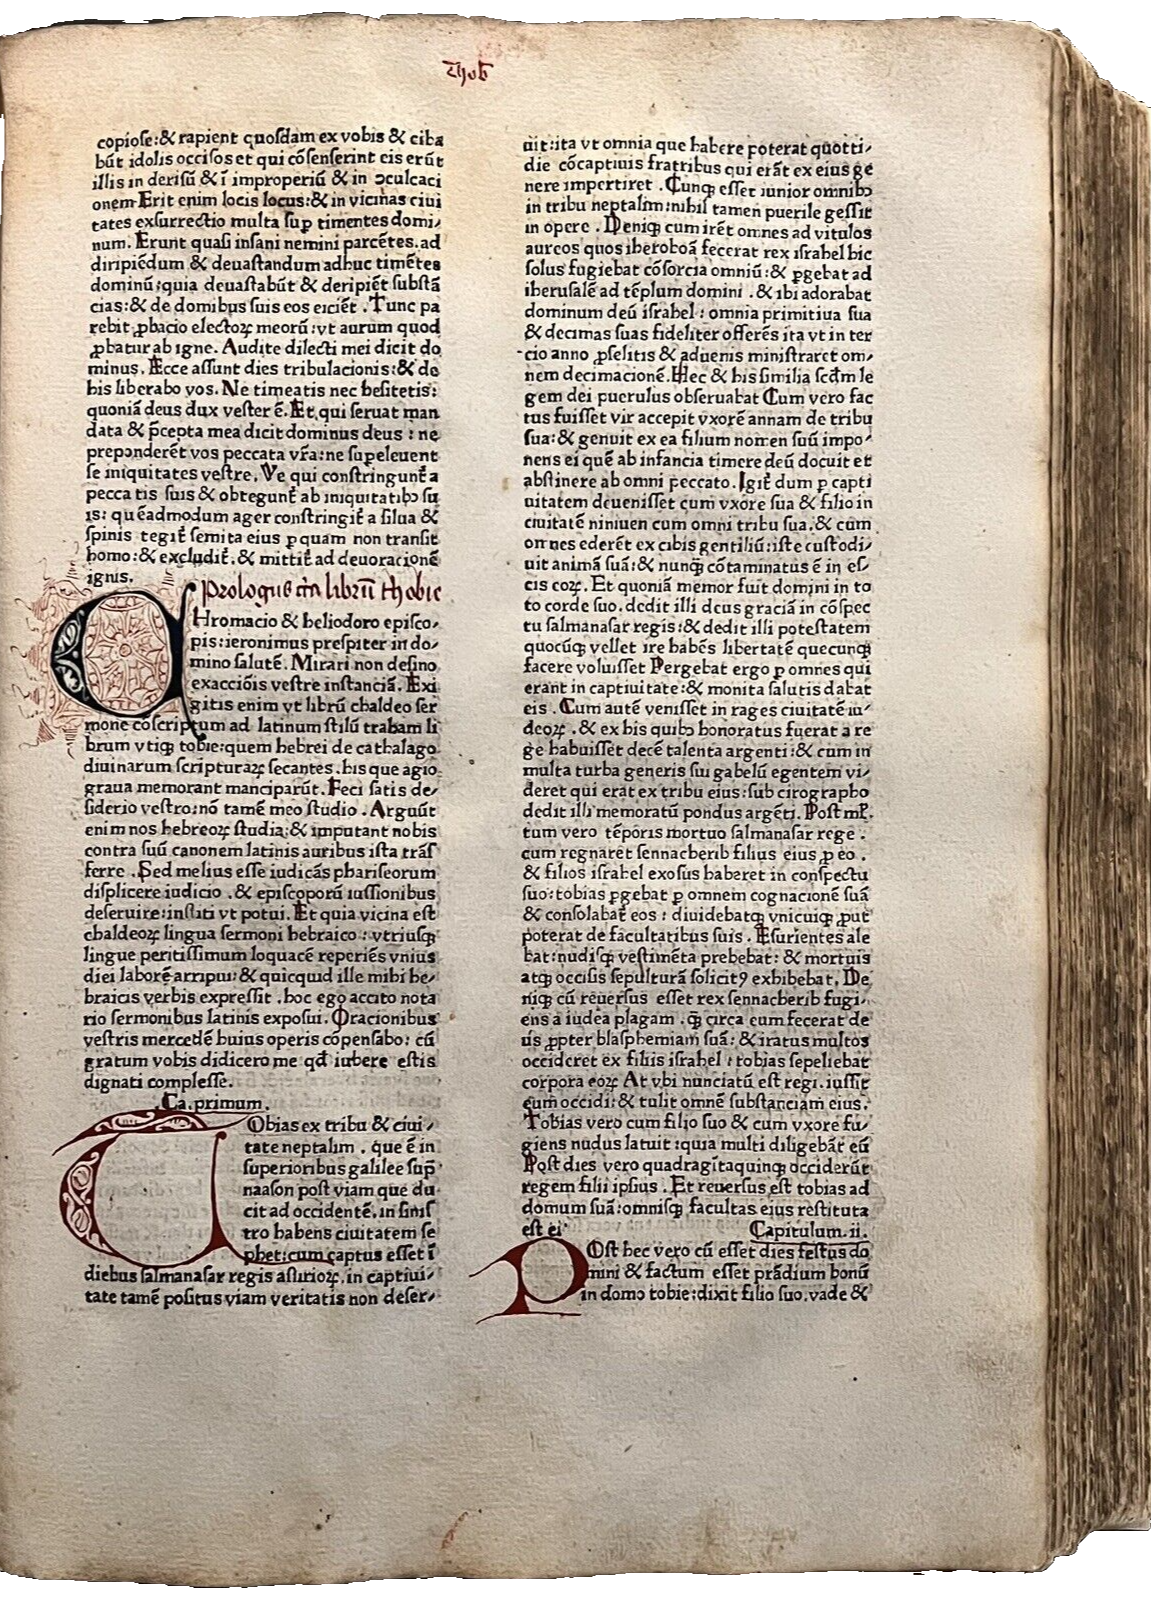 Thob
copiose:& rapient quosdam ex vobis & ciba
būt idolis occisos et qui cōsenserint eis erūt
illis in derisū & ī improperiū & in ꝯculcaci
onem Erit enim locis locus:& in vicinas ciui
tates exsurrectio multa suꝑ timentes domi⸗
num. Erunt quasi insani nemini parcētes. ad
diripiēdum & deuastandum adhuc timētes
dominū:quia deuastabūt & deripiēt substā
cias:& de domibus suis eos eiciēt . Tunc pa
rebit ꝓbacio electoꝝ meorū:vt aurum quod
ꝓbatur ab igne. Audite dilecti mei dicit do
minus. Ecce assunt dies tribulacionis:& de
his liberabo vos. Ne timeatis nec hesitetis:
quoniā deus dux vester ē. Et qui seruat man
data & p̄cepta mea dicit dominus deus : ne
preponderēt vos peccata vr̄a:ne suꝑeleuent
se iniquitates vestre. Ve qui constringunt̄ a
pecca tis suis & obtegunt̄ ab iniquitatibꝫ su
is: quēadmodum ager constringit̄ a silua &
spinis tegit̄ semita eius ꝑ quam non transit
homo:& excludit̄. & mittit̄ ad deuoracionē
ignis.
Prologus in librū thobie
CHromacio & heliodoro episco⸗
pis:ieronimus prespiter in do⸗
mino salutē. Mirari non desino
exacciōis vestre instanciā. Exi
gitis enim vt librū chaldeo ser
mone cōscriptum ad latinum stilū traham li
brum vtiqꝫ tobie:quem hebrei de cathalago
diuinarum scripturaꝝ secantes. his que agio
graua memorant manciparūt. Feci satis de⸗
siderio vestro:nō tamē meo studio . Arguūt
enim nos hebreoꝝ studia:& imputant nobis
contra suū canonem latinis auribus ista trāsf
ferre . Sed melius esse iudicās phariseorum
displicere iudicio . & episcoporū iussionibus
deseruire:institi vt potui. Et quia vicina est
chaldeoꝝ lingua sermoni hebraico : vtriusqꝫ
lingue peritissimum loquacē reperiēs vnius
diei laborē arripui:& quicquid ille mihi he⸗
braicis verbis expressit . hoc ego accito nota
rio sermonibus latinis exposui. Oracionibus
vestris mercedē huius operis cōpensabo: cū
gratum vobis didicero me qd̄ iubere estis
dignati complesse.
Ca.primum.
TObias ex tribu & ciui⸗
tate neptalim . que ē in
superioribus galilee sup̄
naason post viam que du
cit ad occidentē. in sinis
tro habens ciuitatem se
phet:cum captus esset ī
diebus salmanasar regis asirioꝝ. in captiui⸗
tate tamē positus viam veritatis non deser⸗
uit:ita vt omnia que habere poterat quotti⸗
die cōcaptiuis fratribus qui erāt ex eius ge
nere impertiret . Cunqꝫ esset iunior omnibꝫ
in tribu neptalim:nihil tamen puerile gessit
in opere . Deniqꝫ cum irēt omnes ad vitulos
aureos quos iheroboā fecerat rex israhel hic
solus fugiebat cōsorcia omniū:& ꝑgebat ad
iherusalē ad tēplum domini . & ibi adorabat
dominum deū israhel : omnia primitiua sua
& decimas suas fideliter offerēs ita vt in ter
cio anno ꝓselitis & aduenis ministraret om⸗
nem decimacionē. Hec & his similia scd̄m le
gem dei puerulus obseruabat Cum vero fac
tus fuisset vir accepit vxorē annam de tribu
sua:& genuit ex ea filium nomen suū impo⸗
nens ei quē ab infancia timere deū docuit et
abstinere ab omni peccato. Igit̄ dum ꝑ capti
uitatem deuenisset cum vxore sua & filio in
ciuitatē niniuen cum omni tribu sua. & cum
omnes ederēt ex cibis gentiliū:iste custodi⸗
uit animā suā:& nunqꝫ cōtaminatus ē in es⸗
cis eoꝝ. Et quoniā memor fuit domini in to
to corde suo. dedit illi deus graciā in cōspec
tu salmanasar regis:& dedit illi potestatem
quocūqꝫ vellet ire habēs libertatē quecunqꝫ
facere voluisset Pergebat ergo ꝑ omnes qui
erant in captiuitate:& monita salutis dabat
eis . Cum autē venisset in rages ciuitatē iu⸗
deoꝝ . & ex his quibꝫ honoratus fuerat a re
ge habuisset decē talenta argenti:& cum in
multa turba generis sui gabelū egentem vi⸗
deret qui erat ex tribu eius:sub cirographo
dedit illi memoratū pondus argēti. Post ml̄
tum vero tēporis mortuo salmanasar rege .
cum regnaret sennacherib filius eius ꝓ eo .
& filios israhel exosus haberet in conspectu
suo:tobias ꝑgebat ꝑ omnem cognacionē suā
& consolabat̄ eos : diuidebatqꝫ vnicuiqꝫ ꝓut
poterat de facultatibus suis . Esurientes ale
bat:nudisqꝫ vestimēta prebebat: & mortuis
atqꝫ occisis sepulturā solicitꝰ exhibebat. De
niqꝫ cū reuersus esset rex sennacherib fugi⸗
ens a iudea plagam . qꝫ circa eum fecerat de
us ꝓpter blasphemiam suā: & iratus multos
occideret ex filiis israhel : tobias sepeliebat
corpora eoꝝ At vbi nunciatū est regi. iussit
eum occidi:& tulit omnē substanciam eius.
Tobias vero cum filio suo & cum vxore fu⸗
giens nudus latuit :quia multi diligebāt eū
Post dies vero quadragītaquinqꝫ occiderūt
regem filii ipsius . Et reuersus est tobias ad
domum suā:omnisqꝫ facultas eius restituta
est ei Capitulum.ii.
POst hec vero cū esset dies festus do
mini & factum esset prādium bonū
in domo tobie:dixit filio suo. vade &